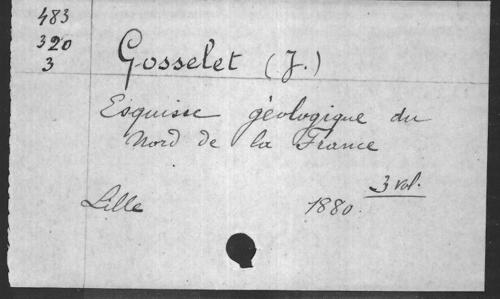 483
320
3
Gosselet (J.)
Esquisse géologique du
Nord de la France
3 vol.
Lille 1880.